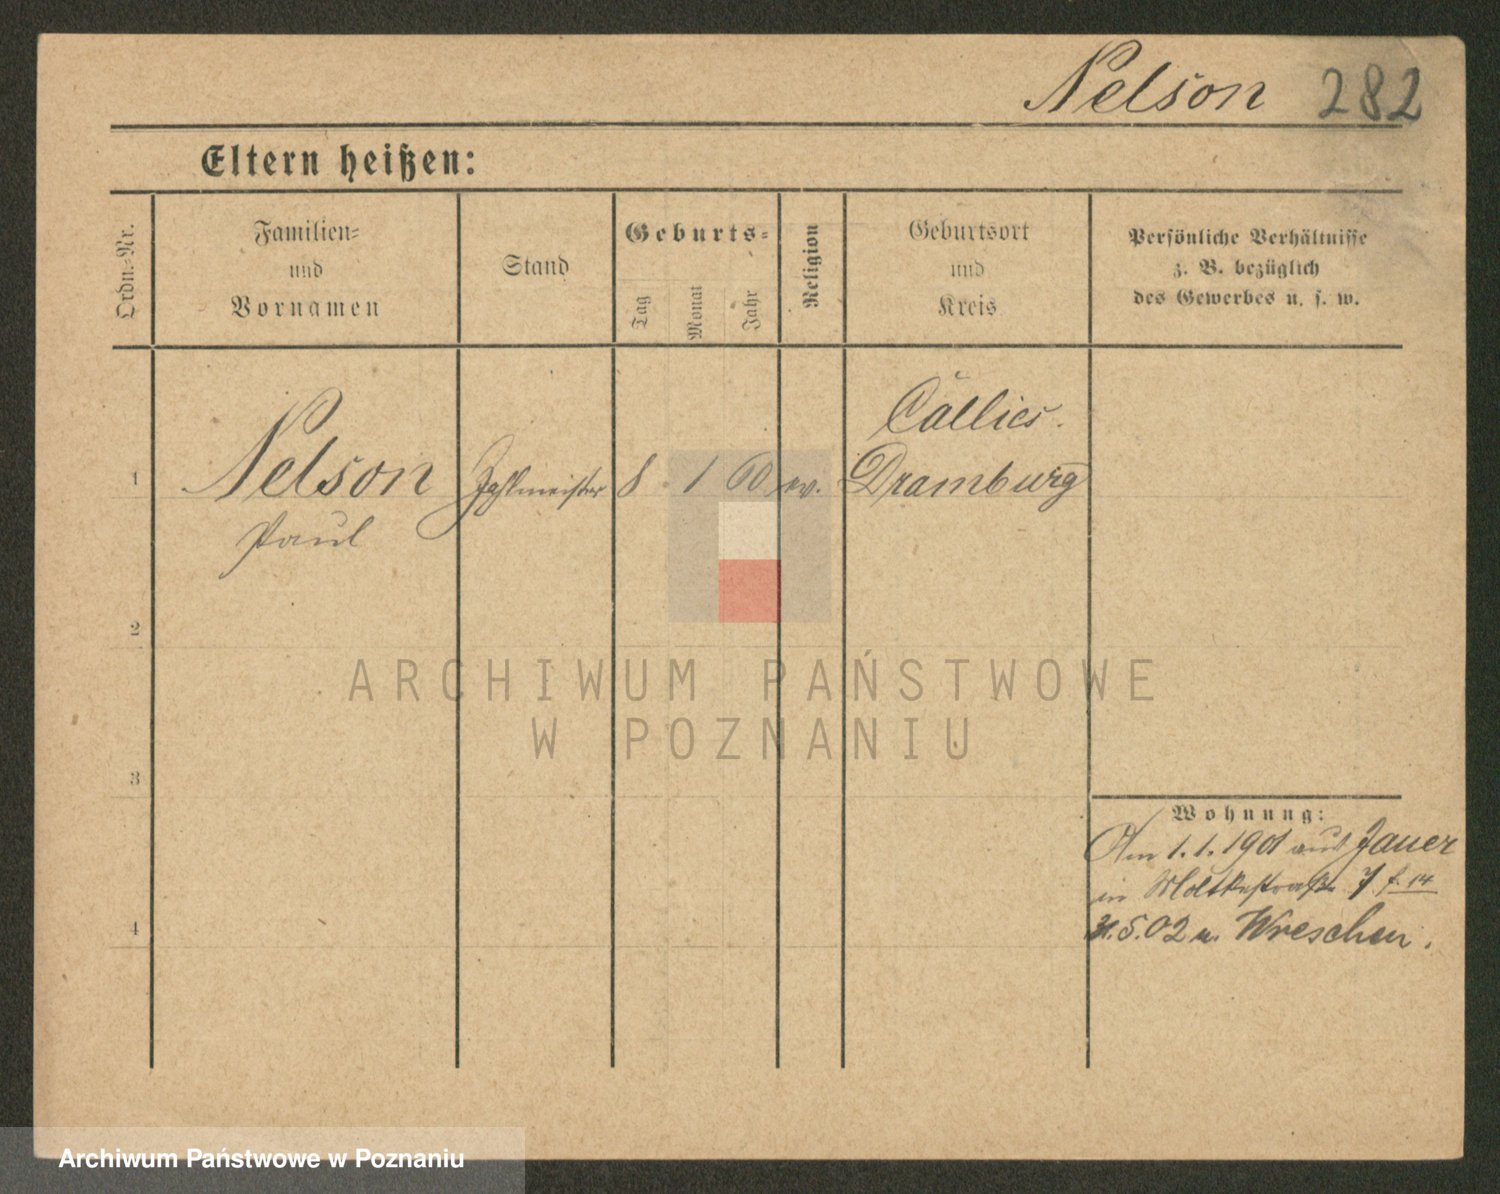 Nelson 282
Eltern heißen:
Ordn.-Nr.
Familien-
und
Vornamen
Stand
Geburts-
Tag
Monat
Jahr
Religion
Geburtsort
und
Kreis
Persönliche Verhältnisse
z. B. bezüglich
des Gewerbes u. s. w.
Callies.
1 Nelson Zahlmeister 8 1 60 ev. Dramburg
Paul
2
ARCHIWUM PAŃSTWOWE
W POZNANIU
3
Wohnung:
Am 1.1.1901 aus Jauer
in Moltkestraße 7 f. 14
4
31.5.02 n. Wreschen.
Archiwum Państwowe w Poznaniu